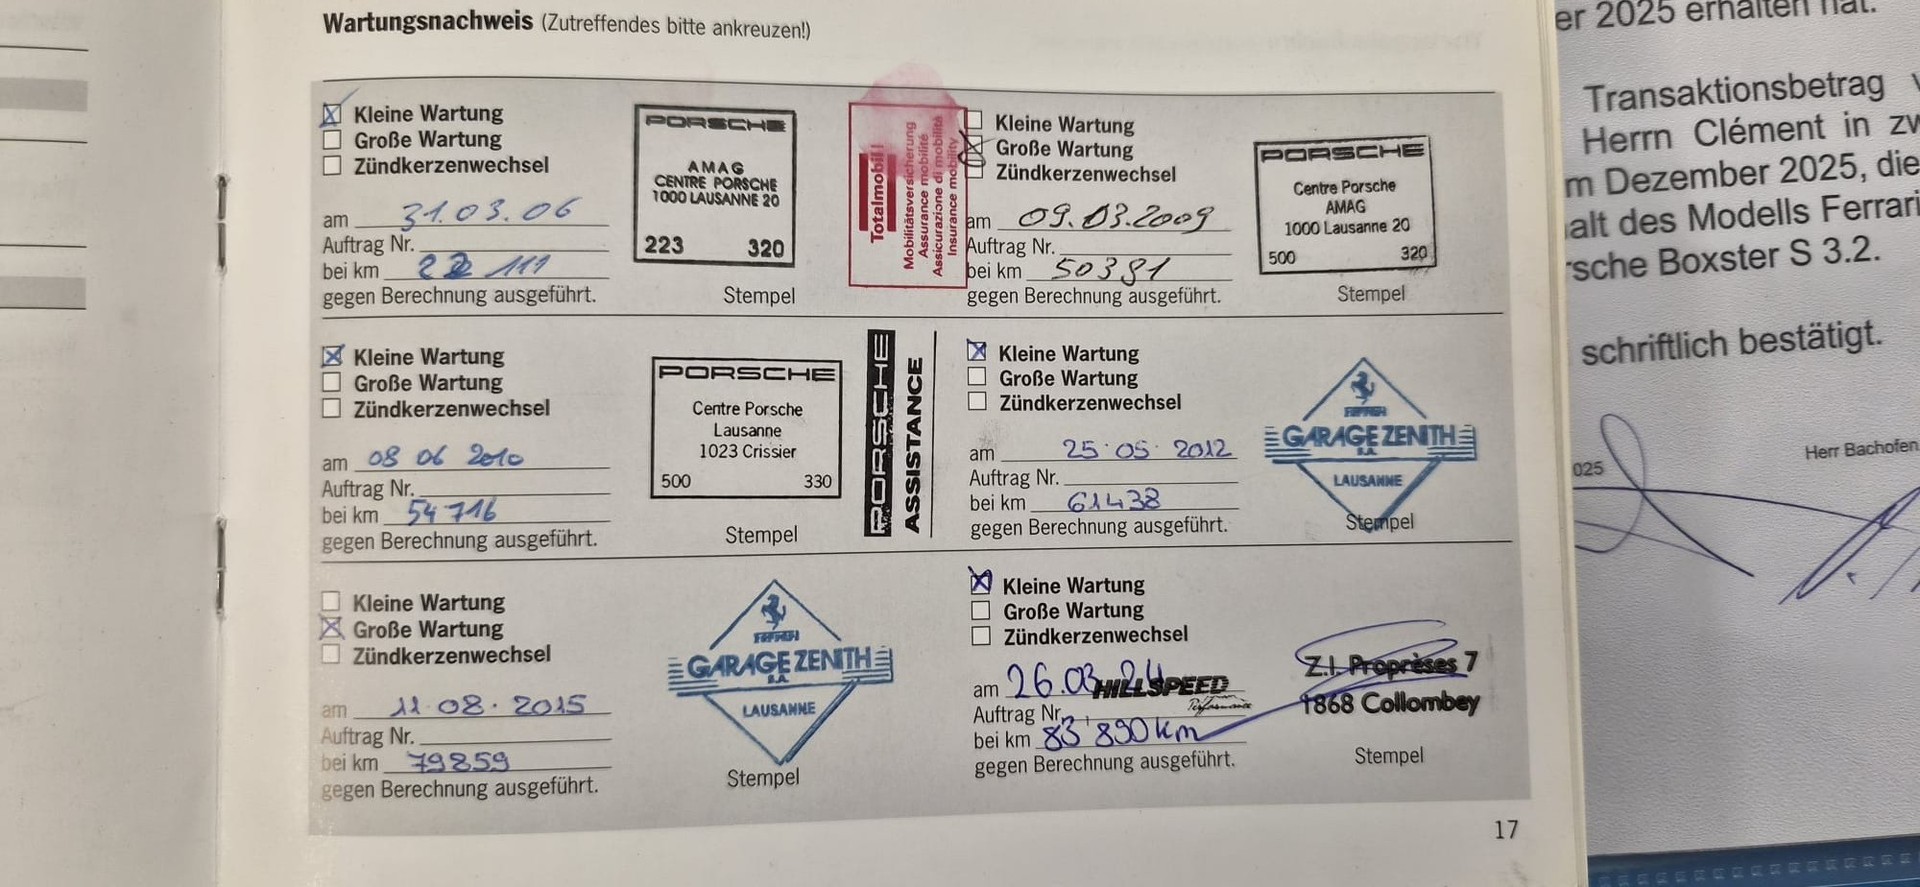 Wartungsnachweis (Zutreffendes bitte ankreuzen!)
Kleine Wartung
Große Wartung
Zündkerzenwechsel
am 31.03.06
Auftrag Nr.
bei km 22 111
gegen Berechnung ausgeführt.
PORSCHE
AMAG
CENTRE PORSCHE
1000 LAUSANNE 20
223 320
Stempel
Totalmobil!
Mobilitätsversicherung
Assurance mobilité
Assicurazione di mobilità
Insurance mobility
Kleine Wartung
Große Wartung
Zündkerzenwechsel
am 09.03.2009
Auftrag Nr.
bei km 50391
gegen Berechnung ausgeführt.
PORSCHE
Centre Porsche
AMAG
1000 Lausanne 20
500 320
Stempel
Kleine Wartung
Große Wartung
Zündkerzenwechsel
am 08 06 2010
Auftrag Nr.
bei km 54716
gegen Berechnung ausgeführt.
PORSCHE
Centre Porsche
Lausanne
1023 Crissier
500 330
Stempel
PORSCHE
ASSISTANCE
Kleine Wartung
Große Wartung
Zündkerzenwechsel
am 25.05.2012
Auftrag Nr.
bei km 61438
gegen Berechnung ausgeführt.
FERRARI
GARAGE ZENITH
S.A.
LAUSANNE
Stempel
Kleine Wartung
Große Wartung
Zündkerzenwechsel
am 11.08.2015
Auftrag Nr.
bei km 79859
gegen Berechnung ausgeführt.
FERRARI
GARAGE ZENITH
S.A.
LAUSANNE
Stempel
Kleine Wartung
Große Wartung
Zündkerzenwechsel
am 26.03.24
HILLSPEED
Performance
Auftrag Nr.
bei km 83'890km
gegen Berechnung ausgeführt.
Z.I. Proprèses 7
1868 Collombey
Stempel
17
er 2025 erhalten hat.
Transaktionsbetrag
Herrn Clément in zw
m Dezember 2025, die
alt des Modells Ferrari
rsche Boxster S 3.2.
schriftlich bestätigt.
Herr Bachofen
025